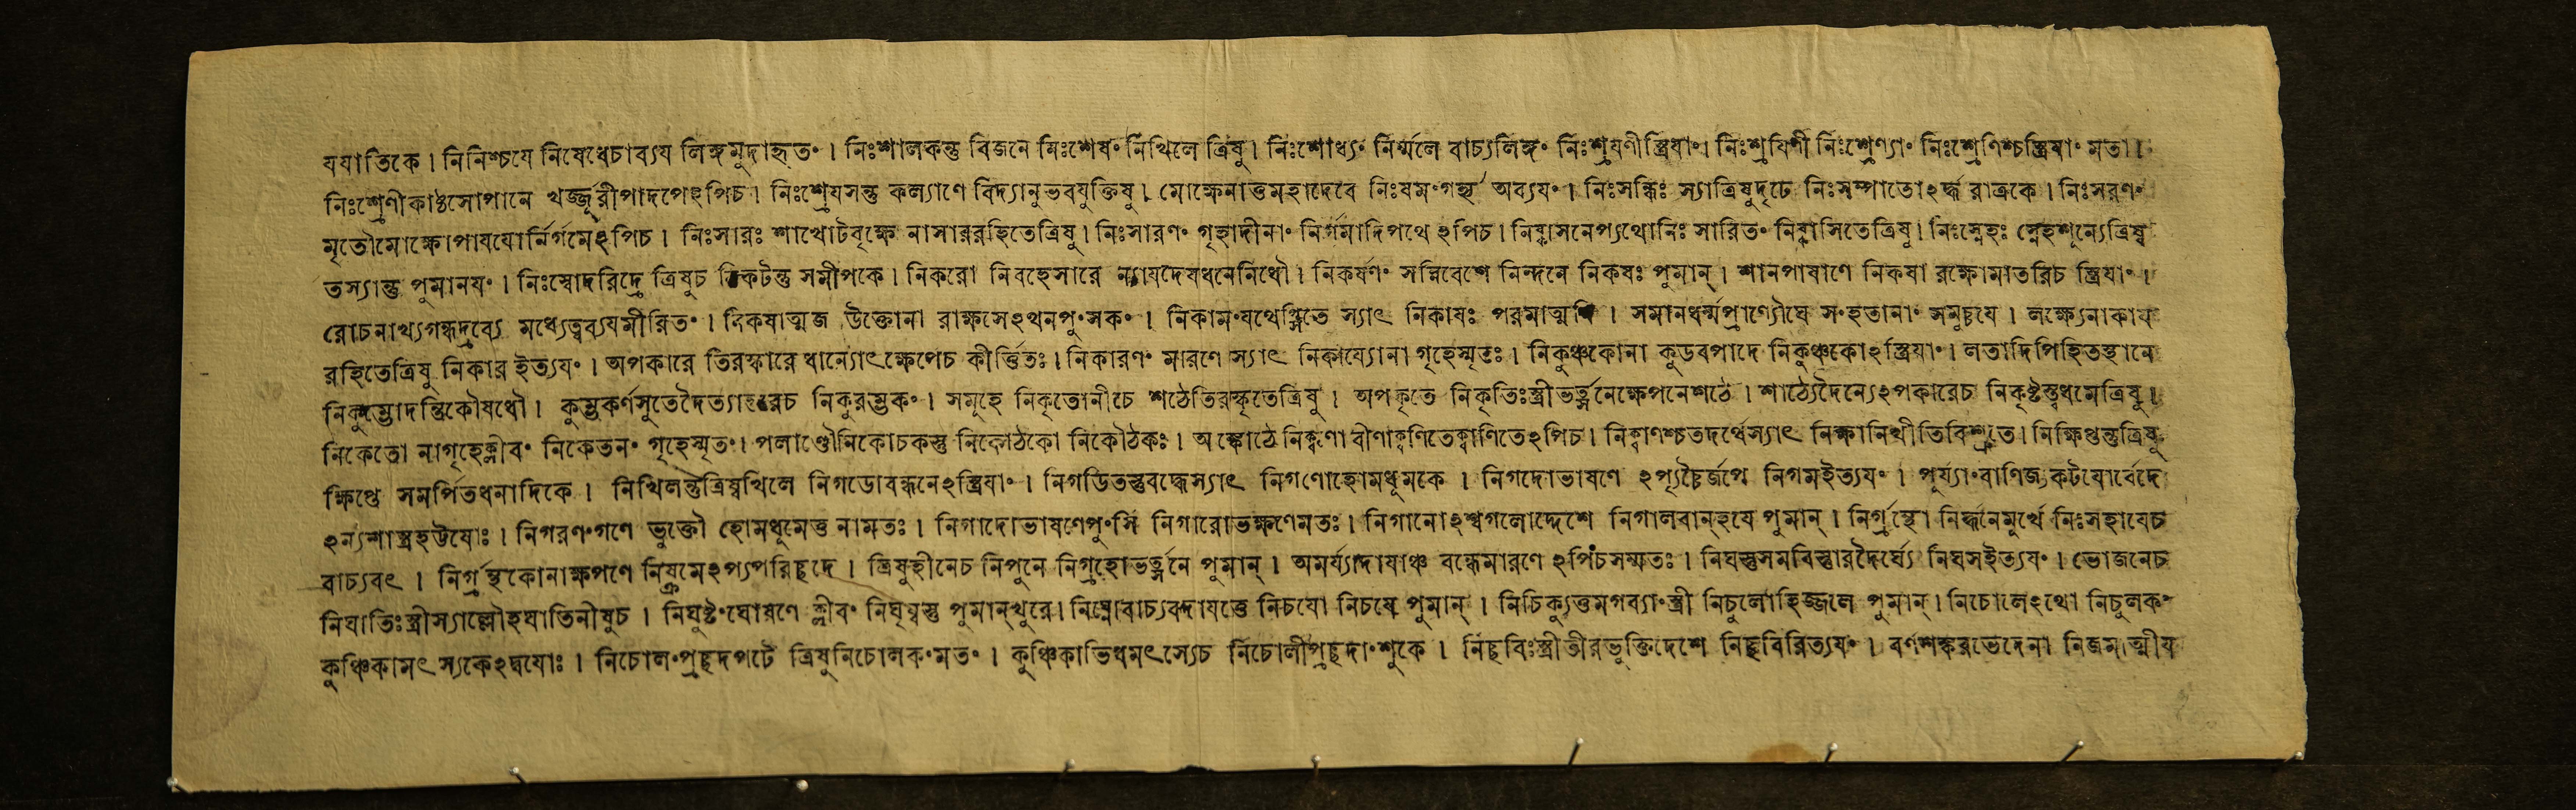 যযাতিকে। নিনিশ্চযে নিষেধেচাব্যয লিঙ্গমুদাহৃতং। নিঃশালকন্তু বিজনে নিঃশেষং নিখিলে ত্রিষু। নিঃশোধ্যং নির্ম্মলে বাচ্যলিঙ্গং নিঃশ্রযণীস্ত্রিযাং। নিঃশ্রযিণী নিঃশ্রেণ্যাং নিঃশ্রেণিশ্চস্ত্রিযাং মতা।
নিঃশ্রেণীকাষ্ঠসোপানে খর্জ্জূরীপাদপেঽপিচ। নিঃশ্রেযসন্তু কল্যাণে বিদ্যানুভবযুক্তিষু। মোক্ষেনাত্তমহাদেবে নিঃষমংগর্হ্য অব্যযং। নিঃসন্ধিঃ স্যাত্রিষুদৃঢে নিঃসম্পাতোঽর্দ্ধ রাত্রকে। নিঃসরণং
মৃতৌমোক্ষোপাযযোর্নির্গমেঽপিচ। নিঃসারঃ শাখোটবৃক্ষে নাসাররহিতেত্রিষু। নিঃসারণং গৃহাদীনাং নির্গমাদিপথে ঽপিচ। নিষ্কাসনেপ্যথোনিঃ সারিতং নিষ্কাসিতেত্রিষু। নিঃস্নেহঃ স্নেহশূন্যেত্রিষ্ব
তস্যান্তু পুমানযং। নিঃস্বোদরিদ্রে ত্রিষুচ নিকটন্তু সমীপকে। নিকরো নিবহেসারে ন্যাযদেযধনেনিধৌ। নিকর্ষণং সন্নিবেশে নিন্দনে নিকষঃ পুমান্। শানপাষাণে নিকষা রক্ষোমাতরিচ স্ত্রিযাং।
রোচনাখ্যগন্ধদ্রব্যে মধ্যেত্বব্যযমীরিতং। নিকষাত্মজ উক্তোনা রাক্ষসেঽথনপুংসকং। নিকামংযথেপ্সিতে স্যাৎ নিকাযঃ পরমাত্মনি। সমানধর্ম্মপ্রাণ্যৌঘে সংহতানাং সমুচ্চযে। লক্ষ্যেনাকায
রহিতেত্রিষু নিকার ইত্যযং। অপকারে তিরস্কারে ধান্যোৎক্ষেপেচ কীর্ত্তিতঃ। নিকারণং মারণে স্যাৎ নিকায্যোনা গৃহেস্মৃতঃ। নিকুঞ্চকোনা কুডবপাদে নিকুঞ্চকোঽস্ত্রিযাং। লতাদিপিহিতস্থানে
নিকুম্ভোদন্তিকৌষধৌ। কুম্ভকর্ণসুতেদৈত্যান্তরেচ নিকুরম্ভকং। সমূহে নিকৃতোনীচে শঠেতিরস্কৃতেত্রিষু। অপকৃতে নিকৃতিঃস্ত্রীভর্ত্সনেক্ষেপনেশঠে। শাঠ্যেদৈন্যেঽপকারেচ নিকৃষ্টস্ত্বধমেত্রিষু।
নিকেতো নাগৃহেক্লীবং নিকেতনং গৃহেস্মৃতং। পলাণ্ডৌনিকোচকস্তু নিকোঠকো নিকৌঠকঃ। অঙ্কোঠে নিক্বণো বীণাক্বণিতেক্বাণিতেঽপিচ। নিক্বাণশ্চতদর্থেস্যাৎ নিক্ষানিখীতিবিশ্রুতে। নিক্ষিপ্তন্তুত্রিষু
ক্ষিপ্তে সমর্পিতধনাদিকে। নিখিলন্তুত্রিষ্বখিলে নিগডোবন্ধনেঽস্ত্রিযাং। নিগডিতস্তুবদ্ধেস্যাৎ নিগণোহোমধূমকে। নিগদোভাষণে ঽপ্যুচ্চৈর্জপে নিগমইত্যযং। পুর্য্যাংবাণিজ্যকটযোর্বেদে
ঽন্যশাস্ত্রহট্টযোঃ। নিগরণংগণে ভুক্তৌ হোমধূমেত্ত নামতঃ। নিগাদোভাষণেপুংসি নিগারোভক্ষণেমতঃ। নিগানোঽশ্বগলোদ্দেশে নিগালবান্হযে পুমান্। নির্গ্রন্থো নির্দ্ধনেমূর্খে নিঃসহাযেচ
বাচ্যবৎ। নির্গ্রন্থকোনাক্ষপণে নিষ্ক্রমেঽপ্যপরিচ্ছদে। ত্রিষুহীনেচ নিপুনে নিগ্রহোভর্ত্সনে পুমান্। অমর্য্যাদাযাঞ্চ বন্ধেমারণে ঽপিচসম্মতঃ। নিঘস্তুসমবিস্তারদৈর্ঘ্যে নিঘসইত্যযং। ভোজনেচ
নিঘাতিঃস্ত্রীস্যাল্লৌহঘাতিনীষুচ। নিঘুষ্টংঘোষণে ক্লীবং নিঘৃষ্বস্তু পুমান্খুরে। নিঘ্নোবাচ্যবদাযত্তে নিচযো নিচযে পুমান্। নিচিক্যুত্তমগব্যাংস্ত্রী নিচুলোহিজ্জলে পুমান্। নিচোলেঽথো নিচুলকং
কুঞ্চিকামৎস্যকেঽদ্বযোঃ। নিচোলংপ্রচ্ছদপটে ত্রিষুনিচোলকংমতং। কুঞ্চিকাভিধমৎস্যেচ নিচোলীপ্রচ্ছদাংশুকে। নিচ্ছবিঃস্ত্রীতীরভুক্তিদেশে নিচ্ছবিরিত্যযং। বর্ণশঙ্করভেদেনা নিজমাত্মীয